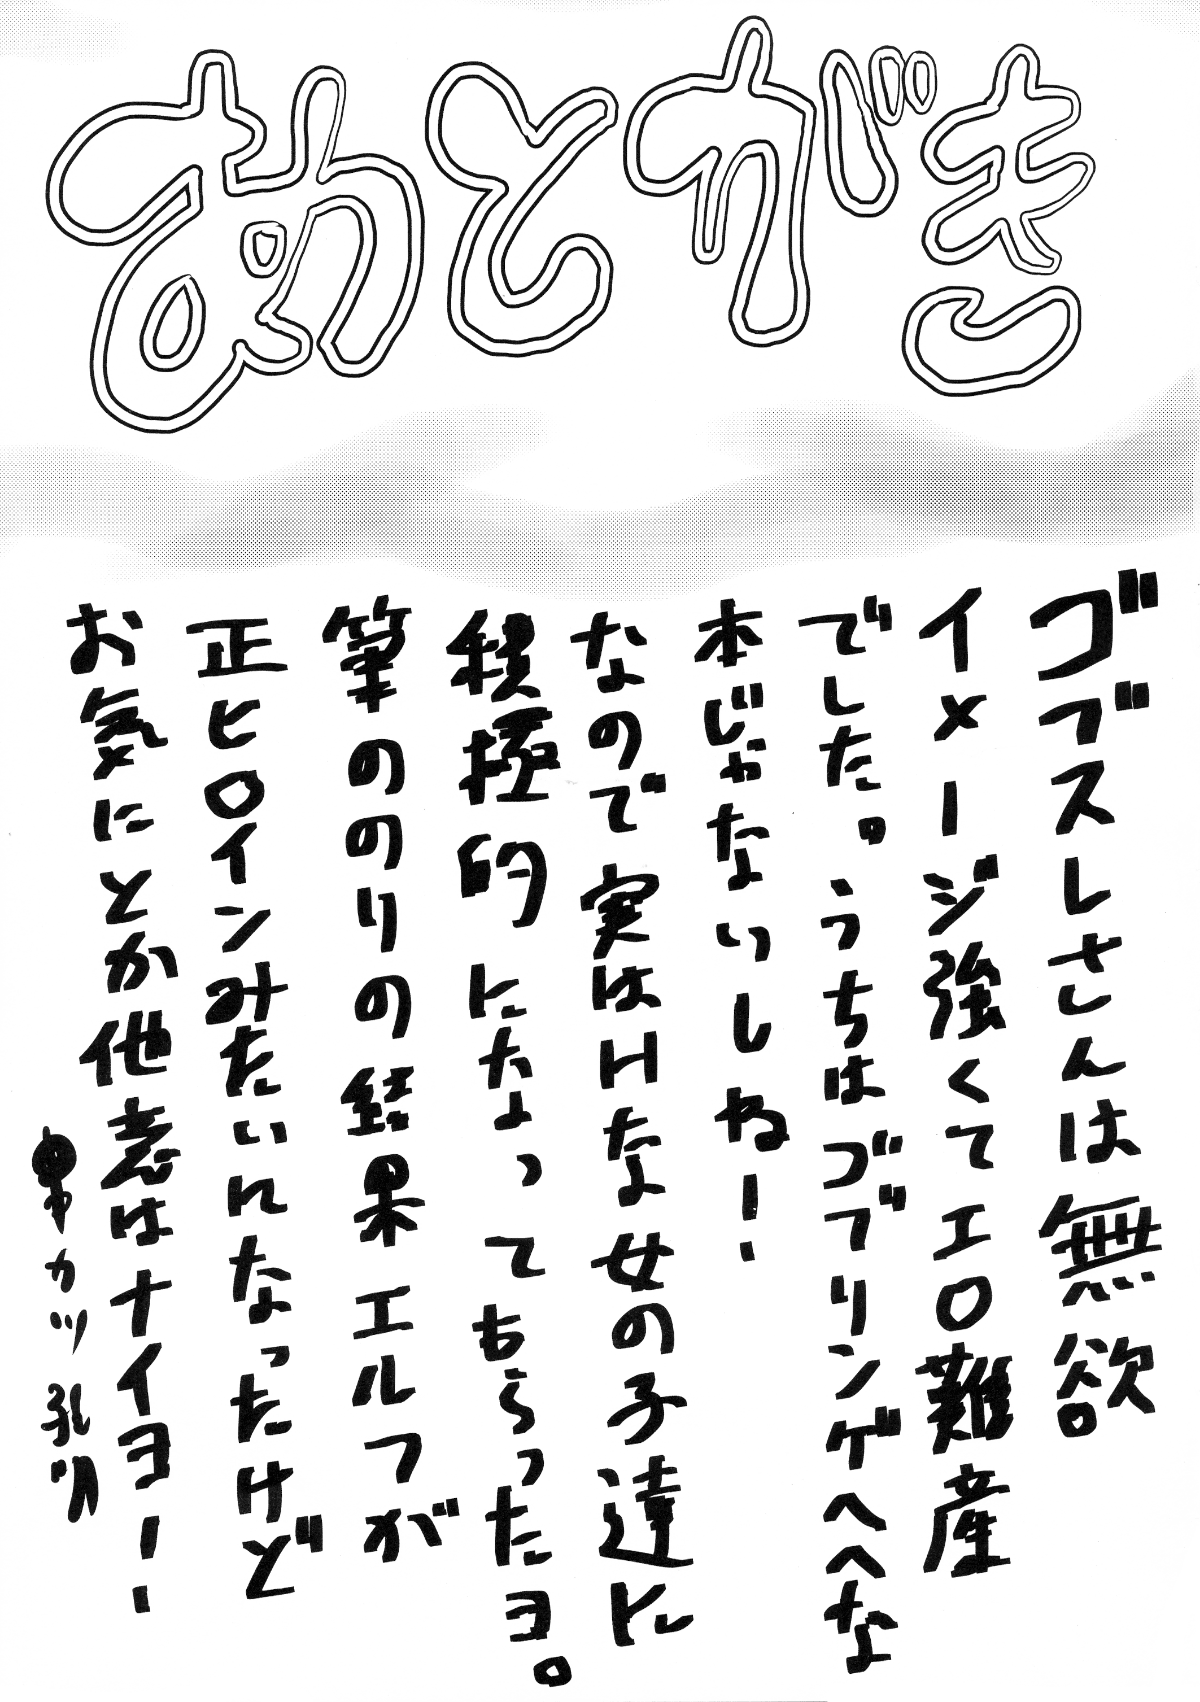 あとがき
ゴブスレさんは無欲
イメージ強くてエロ難産
でした。うちはゴブリンゲヘヘな
本じゃないしね！
なので実はHな女の子達に
積極的になってもらったヨ。
筆ののりの結果エルフが
正ヒロインみたいになったけど
お気にとか他意はナイヨー！
串カツ孔明